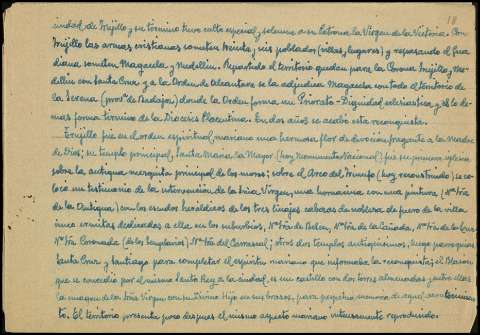 18
ciudad de Trujillo y su término tuvo culto especial y solemne a su Patrona la Virgen de la Victoria. Con
Trujillo las armas cristianas someten treinta y seis poblados (villas, lugares) y repasando el Gua
diana someten Magacela y Medellin. Repartido el territorio quedan para la Corona Trujillo, Me-
dellin con Santa Cruz y a la Orden de Alcantara se la adjudica Magacela con todo el territorio de
la Serena (provª de Badajoz) donde la Orden forma un Priorato-Dignidad eclesiastica y el lo de
mas forma término de la Diocesis Placentina. En dos años se acabó esta reconquista.
Trujillo fué en el orden espiritual, mariano una hermosa flor de devoción fragante a la Madre
de Dios; su templo principal, Santa Maria la Mayor (hoy Monumento Nacional) fué su primera iglesia
sobre la antigua mezquita principal de los moros; sobre el Arco del Triunfo (hoy reconstruido) se co-
loca un testimonio de la intervención de la Stma. Virgen, una hornacina con una pintura (Nª Srª
de la Antigua) con los escudos heráldicos de los tres linajes cabezas de nobleza de fuero de la villa
once ermitas dedicadas a ella en los suburbios, Nª Srª de Belen, Nª Srª de la Caridad, Nª Srª de la Luz
Nª Srª Coronada (de los templarios) Nª Srª del Carrascal; otros dos templos antiquisimos, luego parroquias
Santa Cruz y Santiago para completar el espiritu mariano que informaba la reconquista; el blasón
que se concedio por el mismo Santo Rey a la ciudad, es un castillo con dos torres almenadas y entre ellas
la imagen de la Stma Virgen con su divino Hijo en sus brazos, para perpetua memoria de aquel acontecimien-
to. El territorio presenta poco despues el mismo aspecto mariano intensamente reproducido.